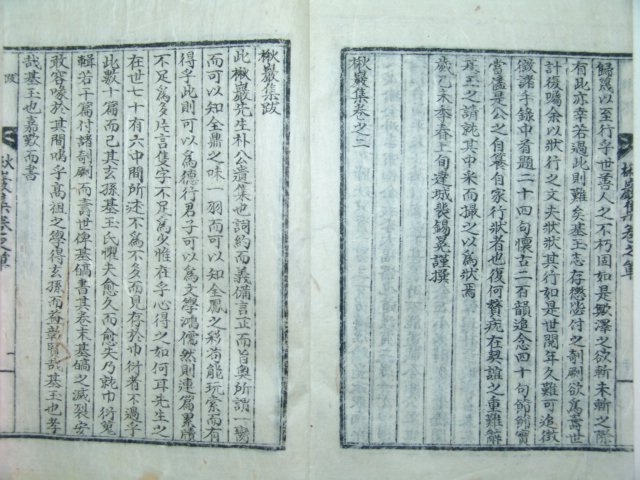 歸篤以至行乎世善人之不朽固如是歟澤之欲斬未斬之際
有此亦幸若過此則難矣基玉志存懲毖付之剞劂欲爲壽世
計復囑余以狀行之文夫狀狀其行如是世閱年久難可追徵
徵諸子錄中首題二十四句懷古二百韻追念四十句節節實
當溘是公之自纂自家行狀者也復何贅疣在契誼之重難解
玉之請就其中采而撮之以爲狀焉
歲乙未季春上旬達城裴錫晃謹撰
楸巖集卷之二
楸巖集卷之單
楸巖集跋
此楸巖先生朴公遺集也詞約而義備言正而旨奧所謂一臠
而可以知全鼎之味一羽而可以知全鳳之彩者能玩索而有
得乎此則可以爲德行君子可以爲文學鴻儒然則連篇累牘
不足爲多片言隻字不足爲少惟在乎心得之如何耳先生之
在世七十有六中間所述不爲不多而見存於巾衍者不過乎
此數十篇而已其玄孫基玉氏懼夫愈久而愈失乃就巾衍蒐
輯若干篇付諸剞劂而壽世俾基鎬書其末基鎬之滅裂安
敢容喙於其間嗚乎高祖之學得玄孫而益彰賢哉基玉也孝
哉基玉也嘉歎而書
跋
楸巖集卷之單